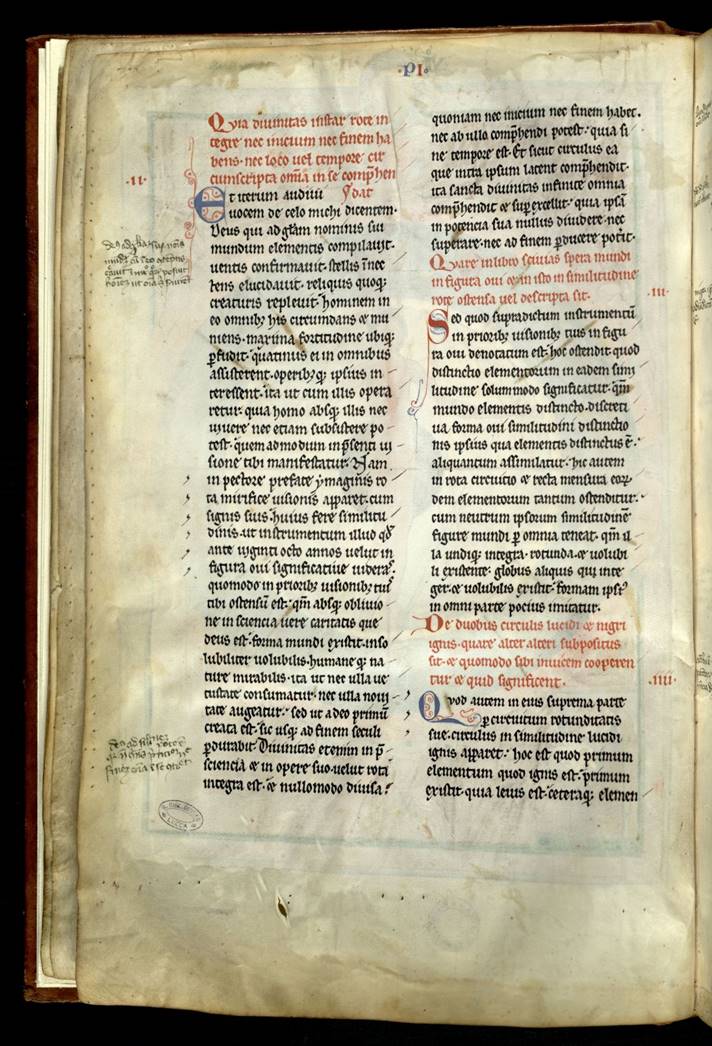 ·PI·
Quia diuinitas instar rote in
tegre nec inicium nec finem ha
bens· nec loco uel tempore cir
cumscripta om̄ia in se comp̄hen
·II·
Et iterum audiui dat
uocem de celo michi dicentem·
Deus qui ad gl̄am nominis sui
mundum elementis compilauit·
uentis confirmauit· stellis īnec
tens elucidauit· reliquis quoq;
creaturis repleuit· hominem in
eo omnibȝ his circumdans ⁊ mu
niens· maxima fortitudine ubiq;
ꝑfudit· quatinus ei in omnibus
assisterent· operibȝ q; ipsius in
teressent· ita ut cum illis opera
retur· quia homo absq; illis nec
uiuere nec etiam subsistere po
test· quemadmodum in p̄senti ui
sione tibi manifestatur· Nam
in pectore prefate ymaginis ro
ta mirifice uisionis apparet· cum
signis suis· huius fere similitu
dinis· ut instrumentum illud qd̄
ante uiginti octo annos uelut in
figura oui significatiue uideras·
quomodo in prioribȝ uisionibȝ tuis
tibi ostensū est· qm̄ absq; obliuio
ne in sciencia uere caritatis que
deus est· forma mundi existit· inso
lubiliter uolubilis· humaneq; na
ture mirabilis· ita ut nec ulla ue
tustate consumatur· nec ulla noui
tate augeatur· sed ut a deo primū
creata est· sic usq; ad finem seculi
ꝑdurabit· Diuinitas etenim in p̄
sciencia ⁊ in opere suo· uelut rota
integra est· ⁊ nullomodo diuisa·
quoniam nec inicium nec finem habet·
nec ab ullo comp̄hendi potest· quia si
ne tempore est· Et sicut circulus ea
que intra ipsum latent comp̄hendit·
ita sancta diuinitas infinite omnia
comp̄hendit ⁊ sup̄excellit· quia ipsā
in potencia sua nullus diuidere· nec
superare· nec ad finem ꝑducere potuit·
Quare in libro sciuias spera mundi
in figura oui ⁊ in isto in similitudine
rote ostensa uel descripta sit·
·III·
Sed quod supradictum instrumentū
in prioribȝ uisionibȝ tuis in figu
ra oui denotatum est· hoc ostendit quod
distinctio elementorum in eadem simi
litudine solummodo significatur· qm̄
mundo elementis distincto· discreti
ua forma oui similitudini distinctio
nis ipsius qua elementis distinctus ē·
aliquantum assimilatur· hic autem
in rota circuitio ⁊ recta mensura eorum
dem elementorum tantum ostenditur·
cum neutrum ipsorum similitudinē
figure mundi ꝑ omnia teneat· qm̄ il
la undiq; integra· rotunda· ⁊ uolubi
li existente· globus aliquis qui inte
ger ⁊ uolubilis existit· formam ipsiꝰ
in omni parte pocius imitatur·
De duobus circulis lucidi ⁊ nigri
ignis· quare alter alteri subpositus
sit· ⁊ quomodo sibi inuicem cooperen
tur ⁊ quid significent·
·IIII·
Quod autem in eius suprema parte
ꝑ circuitum rotunditatis
sue· circulus in similitudine lucidi
ignis apparet· hoc est quod primum
elementum quod ignis est· primum
existit· quia leuis est· ceteraq; elemen
LUCCA